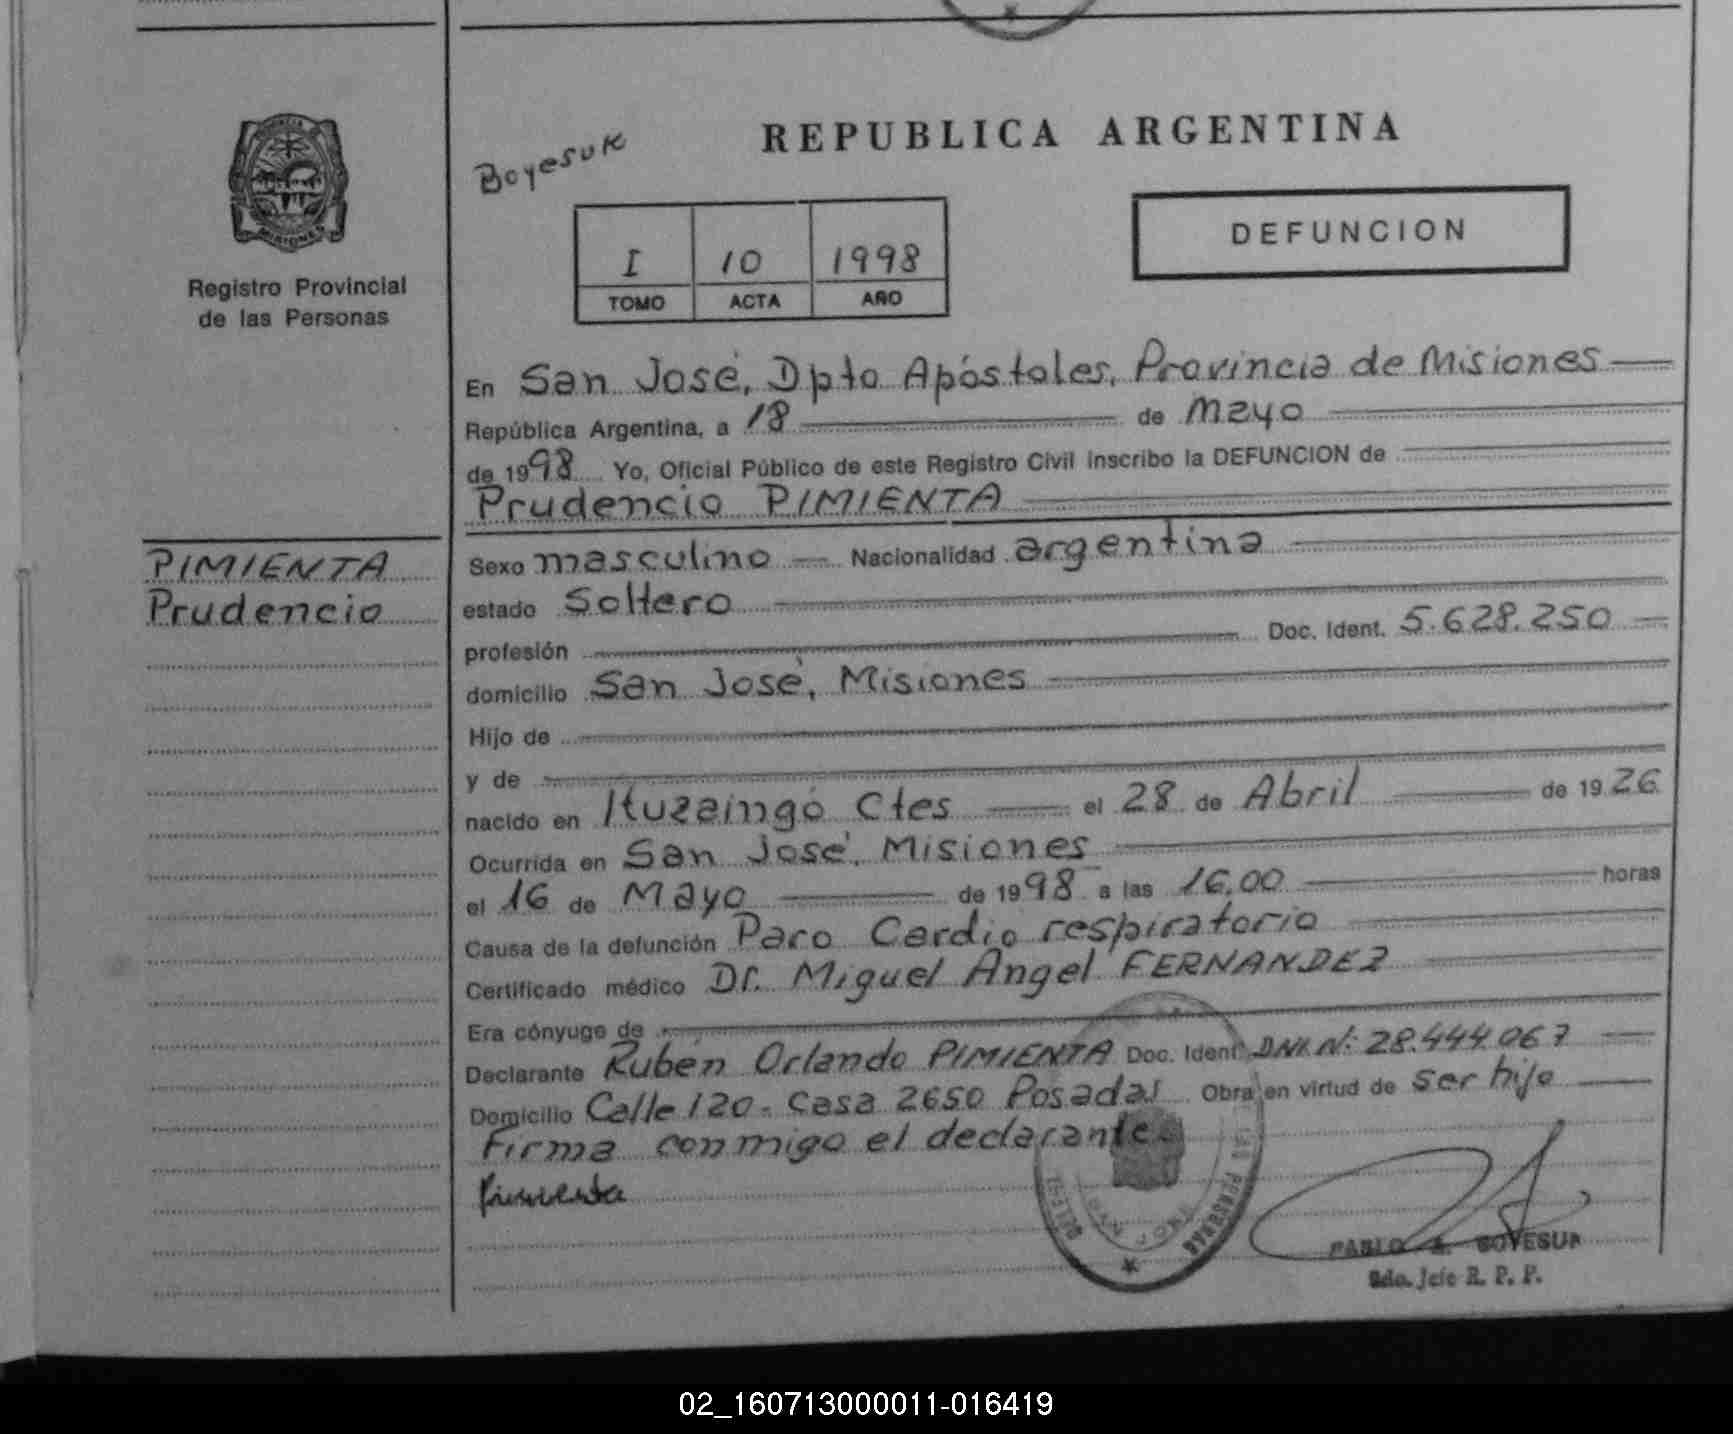 PROVINCIA DE
MISIONES
Registro Provincial
de las Personas
PIMIENTA
Prudencio
Boyesuk
REPUBLICA ARGENTINA
I 10 1998
TOMO ACTA AÑO
DEFUNCION
En San José, Dpto Apóstoles, Provincia de Misiones
República Argentina, a 18 de Mayo
de 1998 Yo, Oficial Público de este Registro Civil inscribo la DEFUNCION de
Prudencio PIMIENTA
Sexo masculino Nacionalidad argentina
estado Soltero
profesión Doc. Ident. 5.628.250
domicilio San José, Misiones
Hijo de
y de
nacido en Ituzaingó Ctes el 28 de Abril de 1926
Ocurrida en San José, Misiones
el 16 de Mayo de 1998 a las 16,00 horas
Causa de la defunción Paro Cardio respiratorio
Certificado médico Dr. Miguel Angel FERNANDEZ
Era cónyuge de
Declarante Rubén Orlando PIMIENTA Doc. Ident. DNI. Nº: 28.444.067
Domicilio Calle 120 - Casa 2650 Posadas Obra en virtud de ser hijo
Firma conmigo el declarante
Pimienta
LAS PERSONAS
PABLO BOYESUK
Jefe R. P. P.
02_160713000011-016419